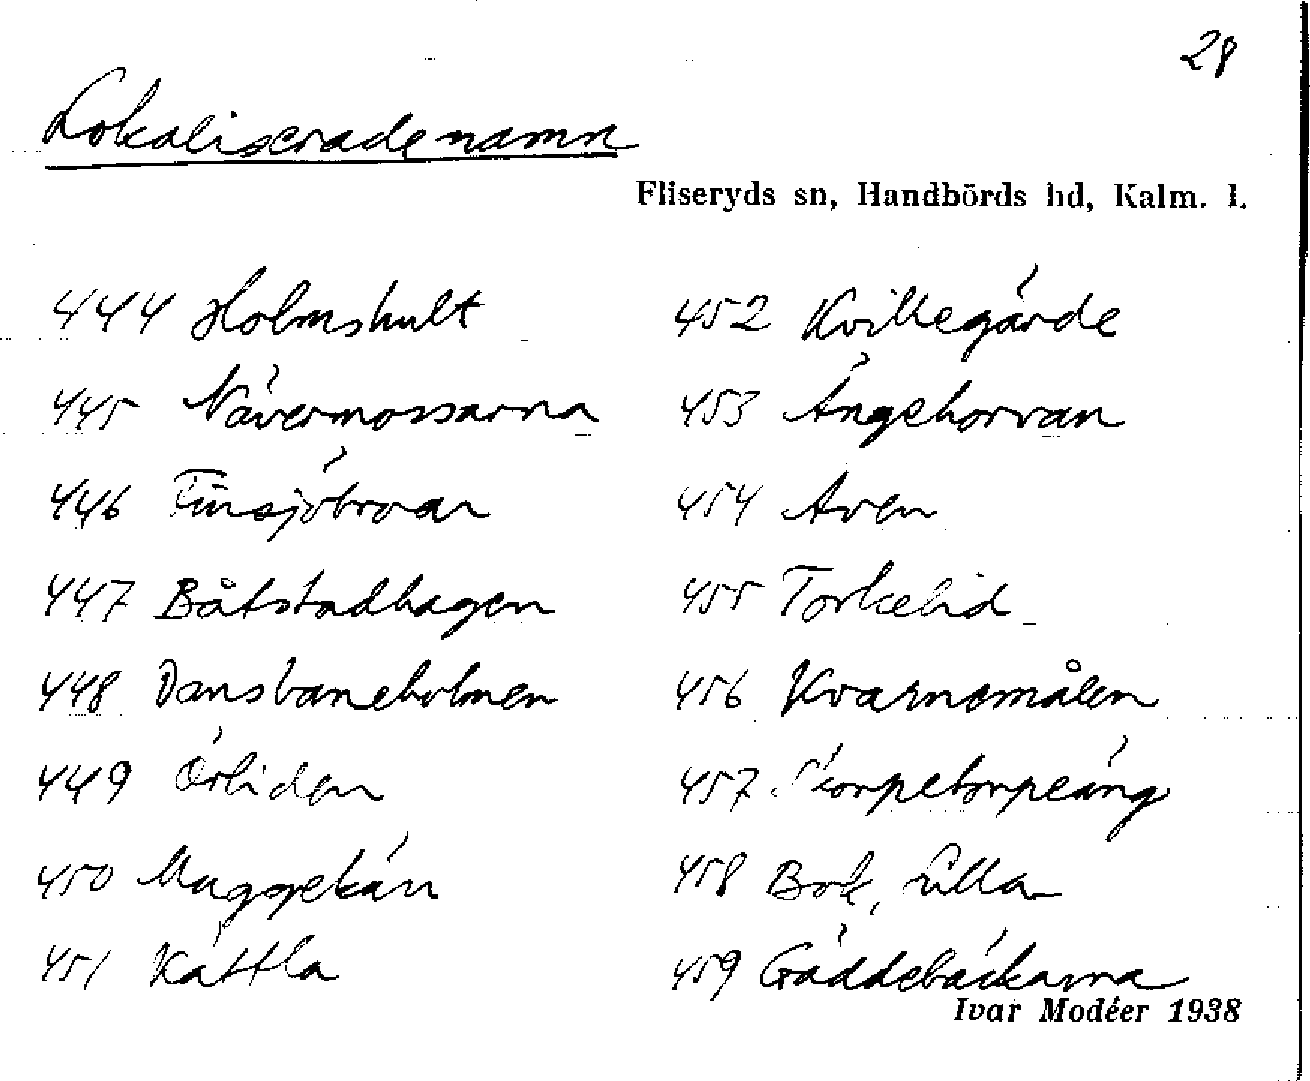 28
Lokaliserade namn
Fliseryds sn, Handbörds hd, Kalm. l.
444 Holmshult
445 Nävermossarna
446 Finsjöbroar
447 Båtstadhagen
448 Dansbaneholmen
449 Örliden
450 Muggekärr
451 Kättla
452 Kvillegärde
453 Ängehorvan
454 Aven
455 Torkelid
456 Kvarnamålen
457 Storpetorpeäng
458 Bok, Lilla
459 Gäddebäckarna
Ivar Modéer 1938